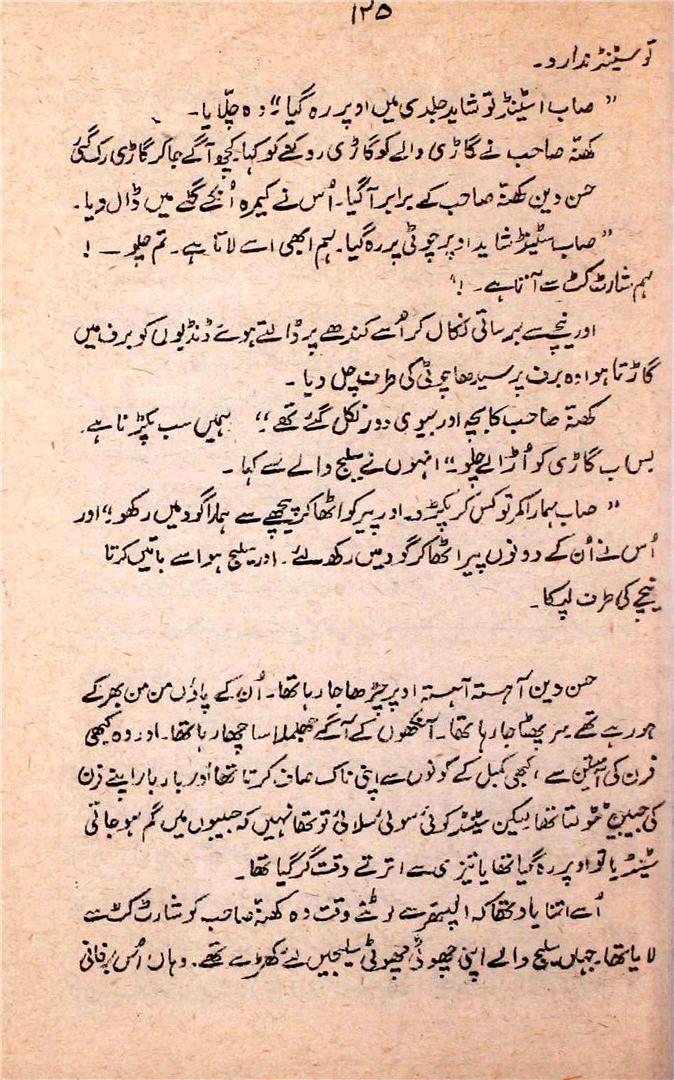 ۱۲۵
تو سٹینڈ ندارد۔
”صاب اسٹینڈ تو شاید جلدی میں اوپر رہ گیا“۔ وہ چلّایا۔
کھنّہ صاحب نے گاڑی والے کو گاڑی روکنے کو کہا۔ کچھ آگے جا کر گاڑی رک گئی
حسن دین کھنّہ صاحب کے برابر آگیا۔ اُس نے کیمرہ اُنکے گلے میں ڈال دیا۔
”صاب سٹینڈ شاید اوپر چوٹی پر رہ گیا۔ ہم ابھی اسے لاتا ہے۔ تم چلو — !
ہم شارٹ کٹ سے آتا ہے۔ !“
اور نیچے سے برساتی نکال کر اُسے کندھے پر ڈالتے ہوئے ڈنڈیوں کو برف میں
گاڑتا ہوا وہ برف پر سیدھا چوٹی کی طرف چل دیا۔
کھنّہ صاحب کا بچہ اور بیوی دور نکل گئے تھے۔ ”ہمیں سب پکڑنا ہے
بس اب گاڑی کو اُڑا لے چلو“۔ انہوں نے سلیج والے سے کہا۔
”صاب ہمارا کمر تو کس کر پکڑو۔ اور پیر کو اٹھا کر پیچھے سے ہمارا گود میں رکھو“۔ اور
اُس نے اُن کے دونوں پیر اٹھا کر گود میں رکھ لئے۔ اور سلیج ہوا سے باتیں کرتا
نیچے کی طرف لپکا۔
حسن دین آہستہ آہستہ اوپر چڑھا جا رہا تھا۔ اُن کے پاؤں من من بھر کے
ہو رہے تھے سر پھٹا جا رہا تھا۔ آنکھوں کے آگے جھلملا سا چھا رہا تھا۔ اور وہ کبھی
فرن کی آستین سے ، کبھی کمبل کے کونوں سے اپنی ناک صاف کرتا تھا اور بار بار اپنے فرن
کی جیبیں ٹٹولتا تھا لیکن سٹینڈ کوئی سوئی سلائی تو تھا نہیں کہ جیبوں میں گم ہو جاتی
سٹینڈ یا تو اوپر رہ گیا تھا یا تیزی سے اترتے وقت گر گیا تھا۔
اُسے اتنا یاد تھا کہ الپتھر سے لوٹتے وقت وہ کھنّہ صاحب کو شارٹ کٹ سے
لایا تھا۔ جہاں سلیج والے اپنی چھوٹی چھوٹی سلیجیں لئے کھڑے تھے۔ وہاں اُس برفانی